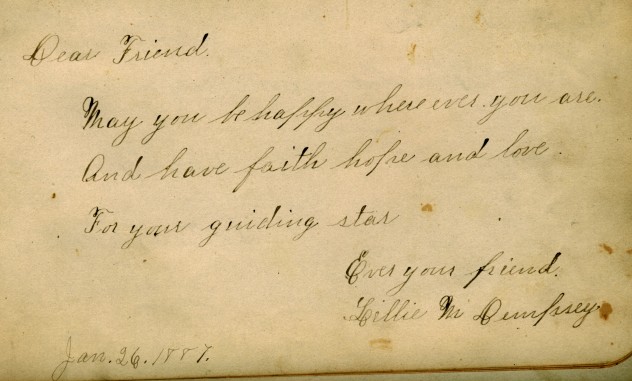 Dear Friend.
May you be happy where ever you are.
And have faith hope and love.
For your guiding star
Ever your friend.
Lillie M Dempsey.
Jan. 26. 1887.